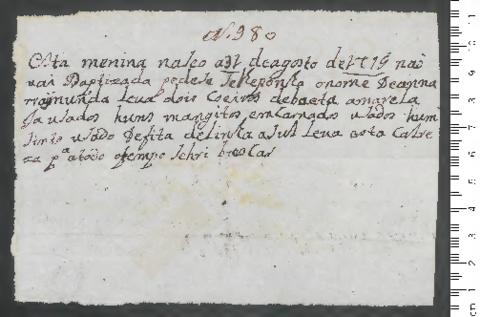 N. 980
Esta menina naseo a 31 de agosto de 1719 naõ
vai Baptizada pedese se lhe ponha o nome De anna
rraymunda leva dois Coeiros de baeta amarela
ja uzados huns mangitos emCarnados uzados hum
sinto uzado De fita de linha azul leva esta Caste
za p.ª a todo o tempo se